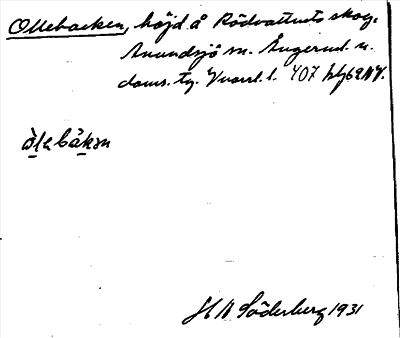 Ollebacken, höjd å Rödvattnets skog.
Anundsjö sn. Ångerml. n.
doms. tg. Vnorrl. l. 707 htg62NV.
ὰlebákən
H N Söderberg 1931